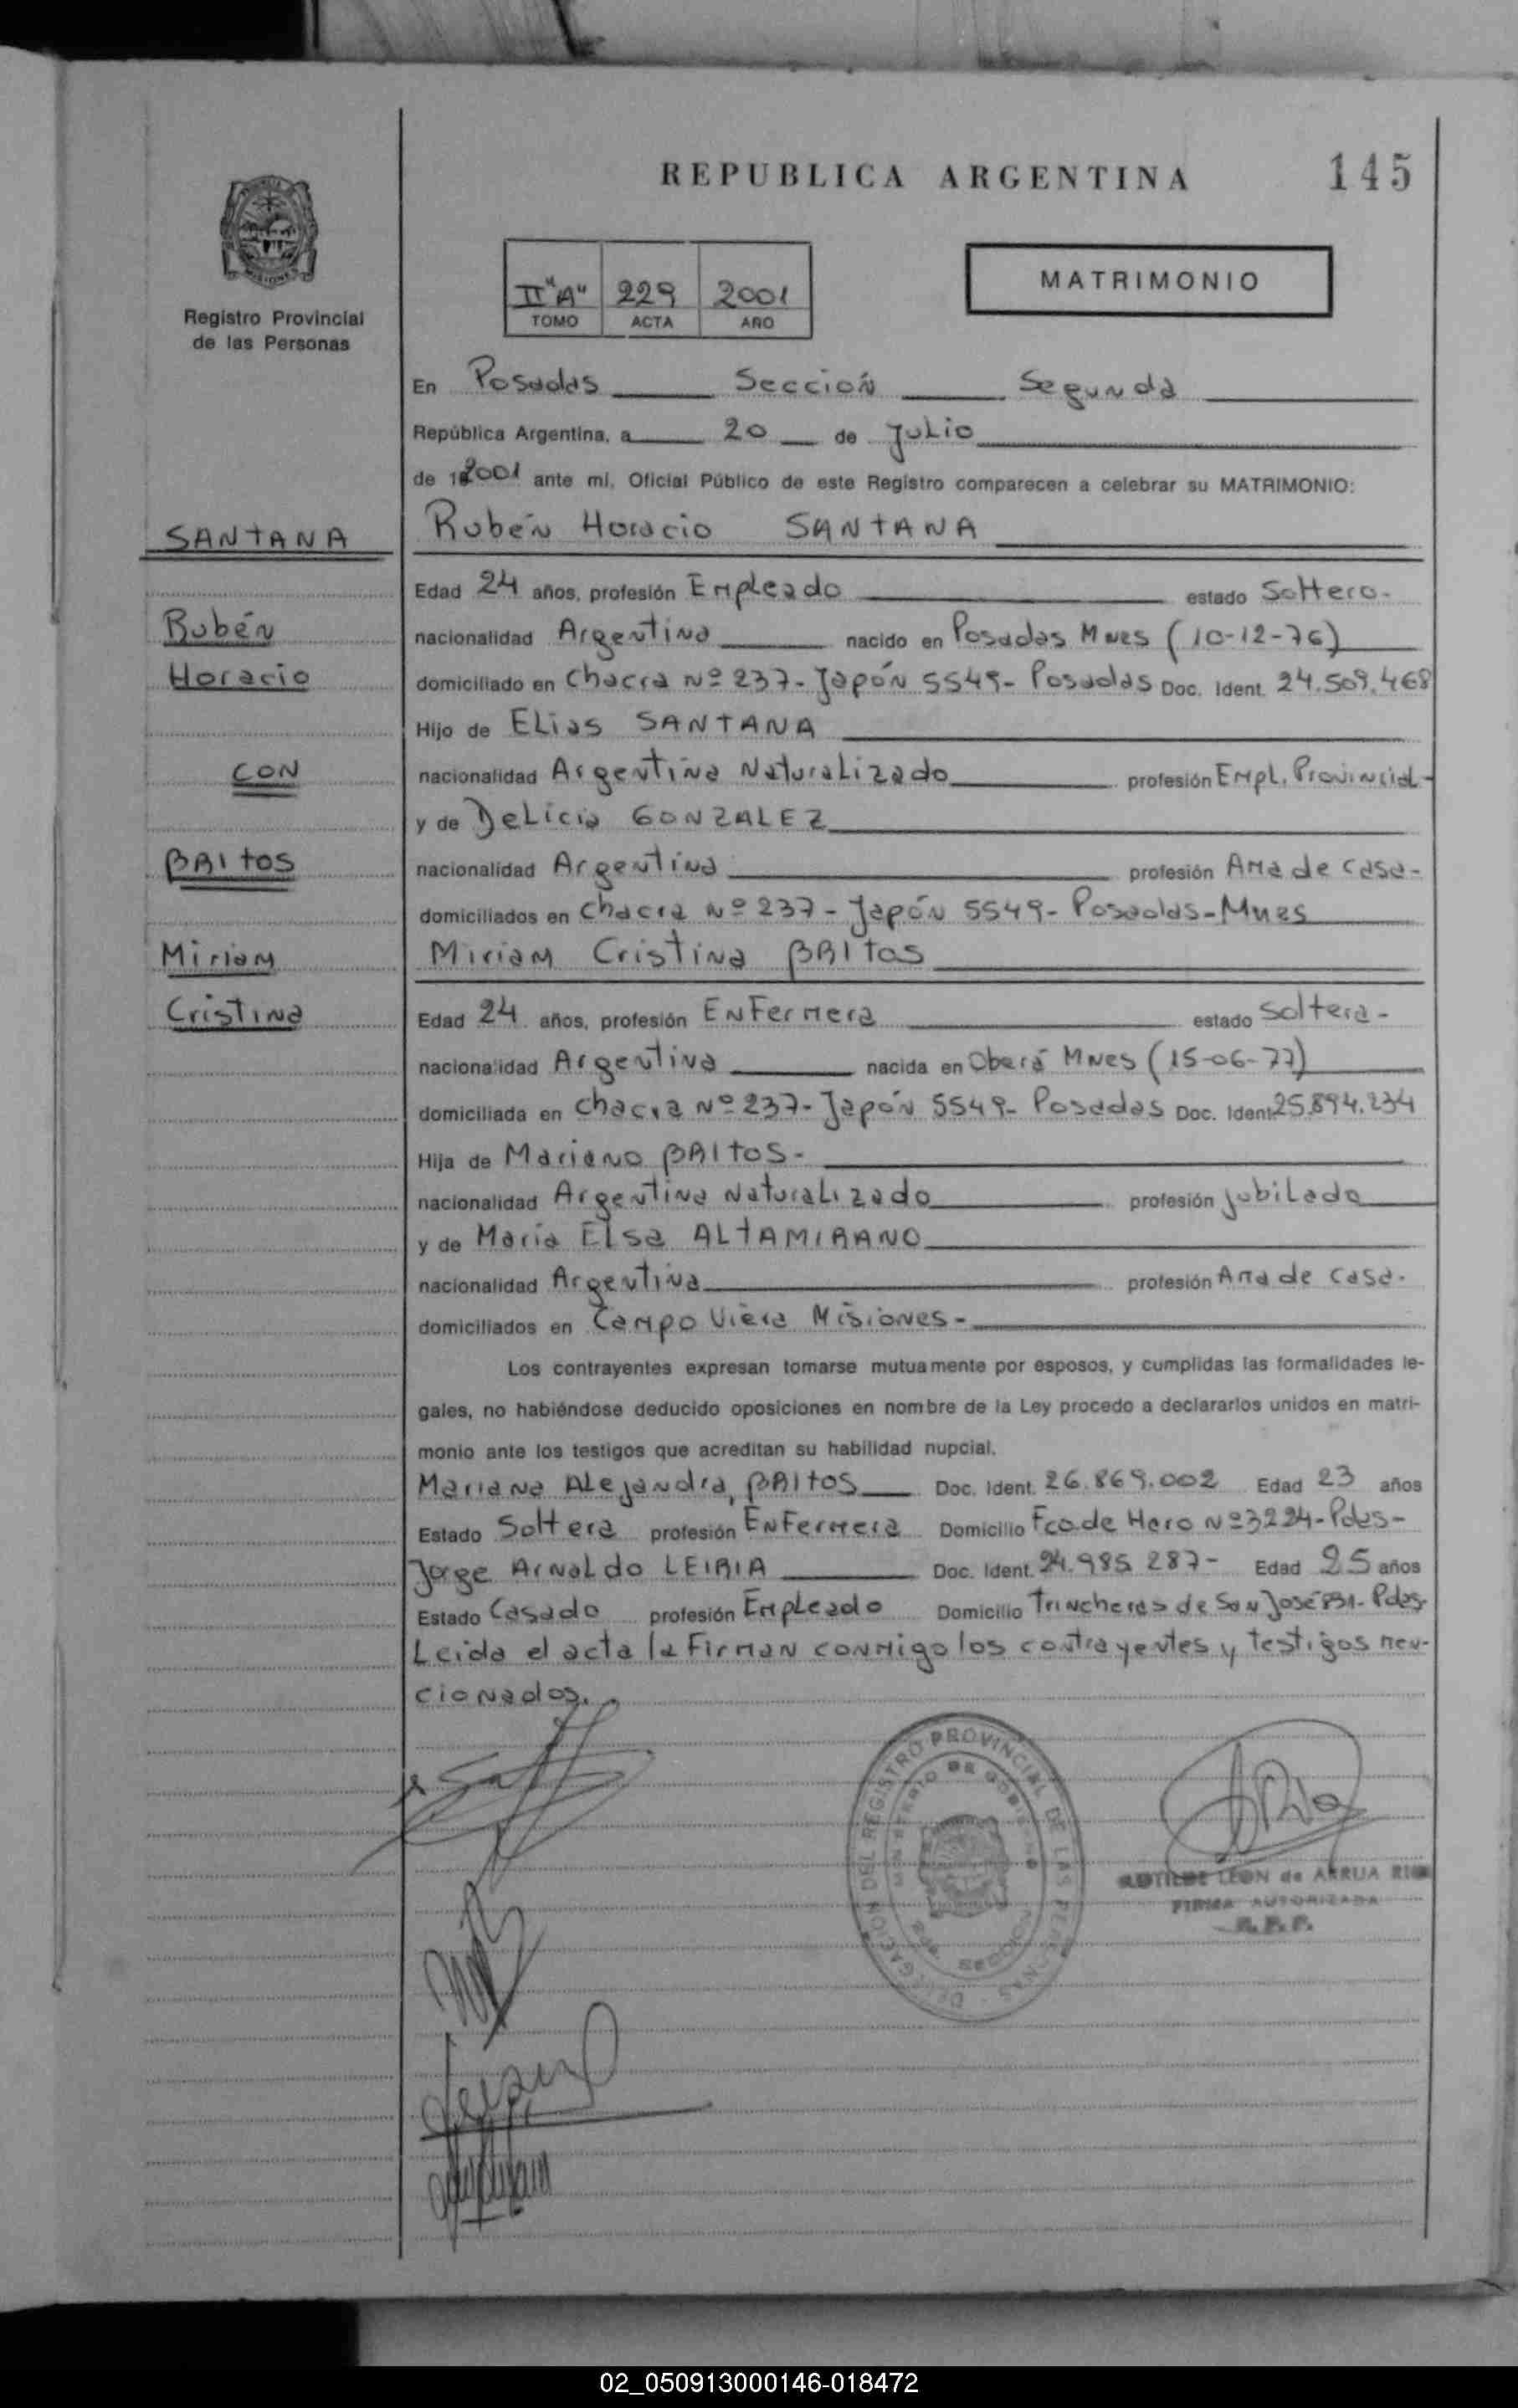 REPUBLICA ARGENTINA
145
II "A" 229 2001
TOMO ACTA AÑO
MATRIMONIO
Registro Provincial
de las Personas
En Posadas Sección Segunda
República Argentina, a 20 de Julio
de 2001 ante mí, Oficial Público de este Registro comparecen a celebrar su MATRIMONIO:
SANTANA
Rubén Horacio SANTANA
Edad 24 años, profesión Empleado estado Soltero-
Rubén
nacionalidad Argentina nacido en Posadas Mnes (10-12-76)
Horacio
domiciliado en Chacra Nº 237- Japón 5549- Posadas Doc. Ident. 24.509.468
Hijo de Elias SANTANA
CON
nacionalidad Argentina Naturalizado profesión Empl. Provincial-
y de Delicia GONZALEZ
BAITOS
nacionalidad Argentina profesión Ama de casa-
domiciliados en Chacra Nº 237- Japón 5549- Posadas-Mnes
Miriam
Miriam Cristina BAITOS
Cristina
Edad 24 años, profesión Enfermera estado Soltera-
nacionalidad Argentina nacida en Oberá Mnes (15-06-77)
domiciliada en Chacra Nº 237- Japón 5549- Posadas Doc. Ident. 25.894.234
Hija de Mariano BAITOS-
nacionalidad Argentina Naturalizado profesión Jubilado
y de Maria Elsa ALTAMIRANO
nacionalidad Argentina profesión Ama de Casa.
domiciliados en Campo Viera Misiones-
Los contrayentes expresan tomarse mutuamente por esposos, y cumplidas las formalidades le-
gales, no habiéndose deducido oposiciones en nombre de la Ley procedo a declararlos unidos en matri-
monio ante los testigos que acreditan su habilidad nupcial.
Mariana Alejandra, BAITOS Doc. Ident. 26.869.002 Edad 23 años
Estado Soltera profesión Enfermera Domicilio Fco de Haro Nº 3224-Pdas-
Jorge Arnaldo LEIRIA Doc. Ident. 24.985.287- Edad 25 años
Estado Casado profesión Empleado Domicilio Trincheras de San José 831- Pdas.
Leida el acta la Firman conmigo los contrayentes y testigos men-
cionados.
DELEGACION DEL REGISTRO PROVINCIAL DE LAS PERSONAS
MINISTERIO DE GOBIERNO
POSADAS
LEON de ARRUA
FIRMA AUTORIZADA
R.P.P.
02_050913000146-018472